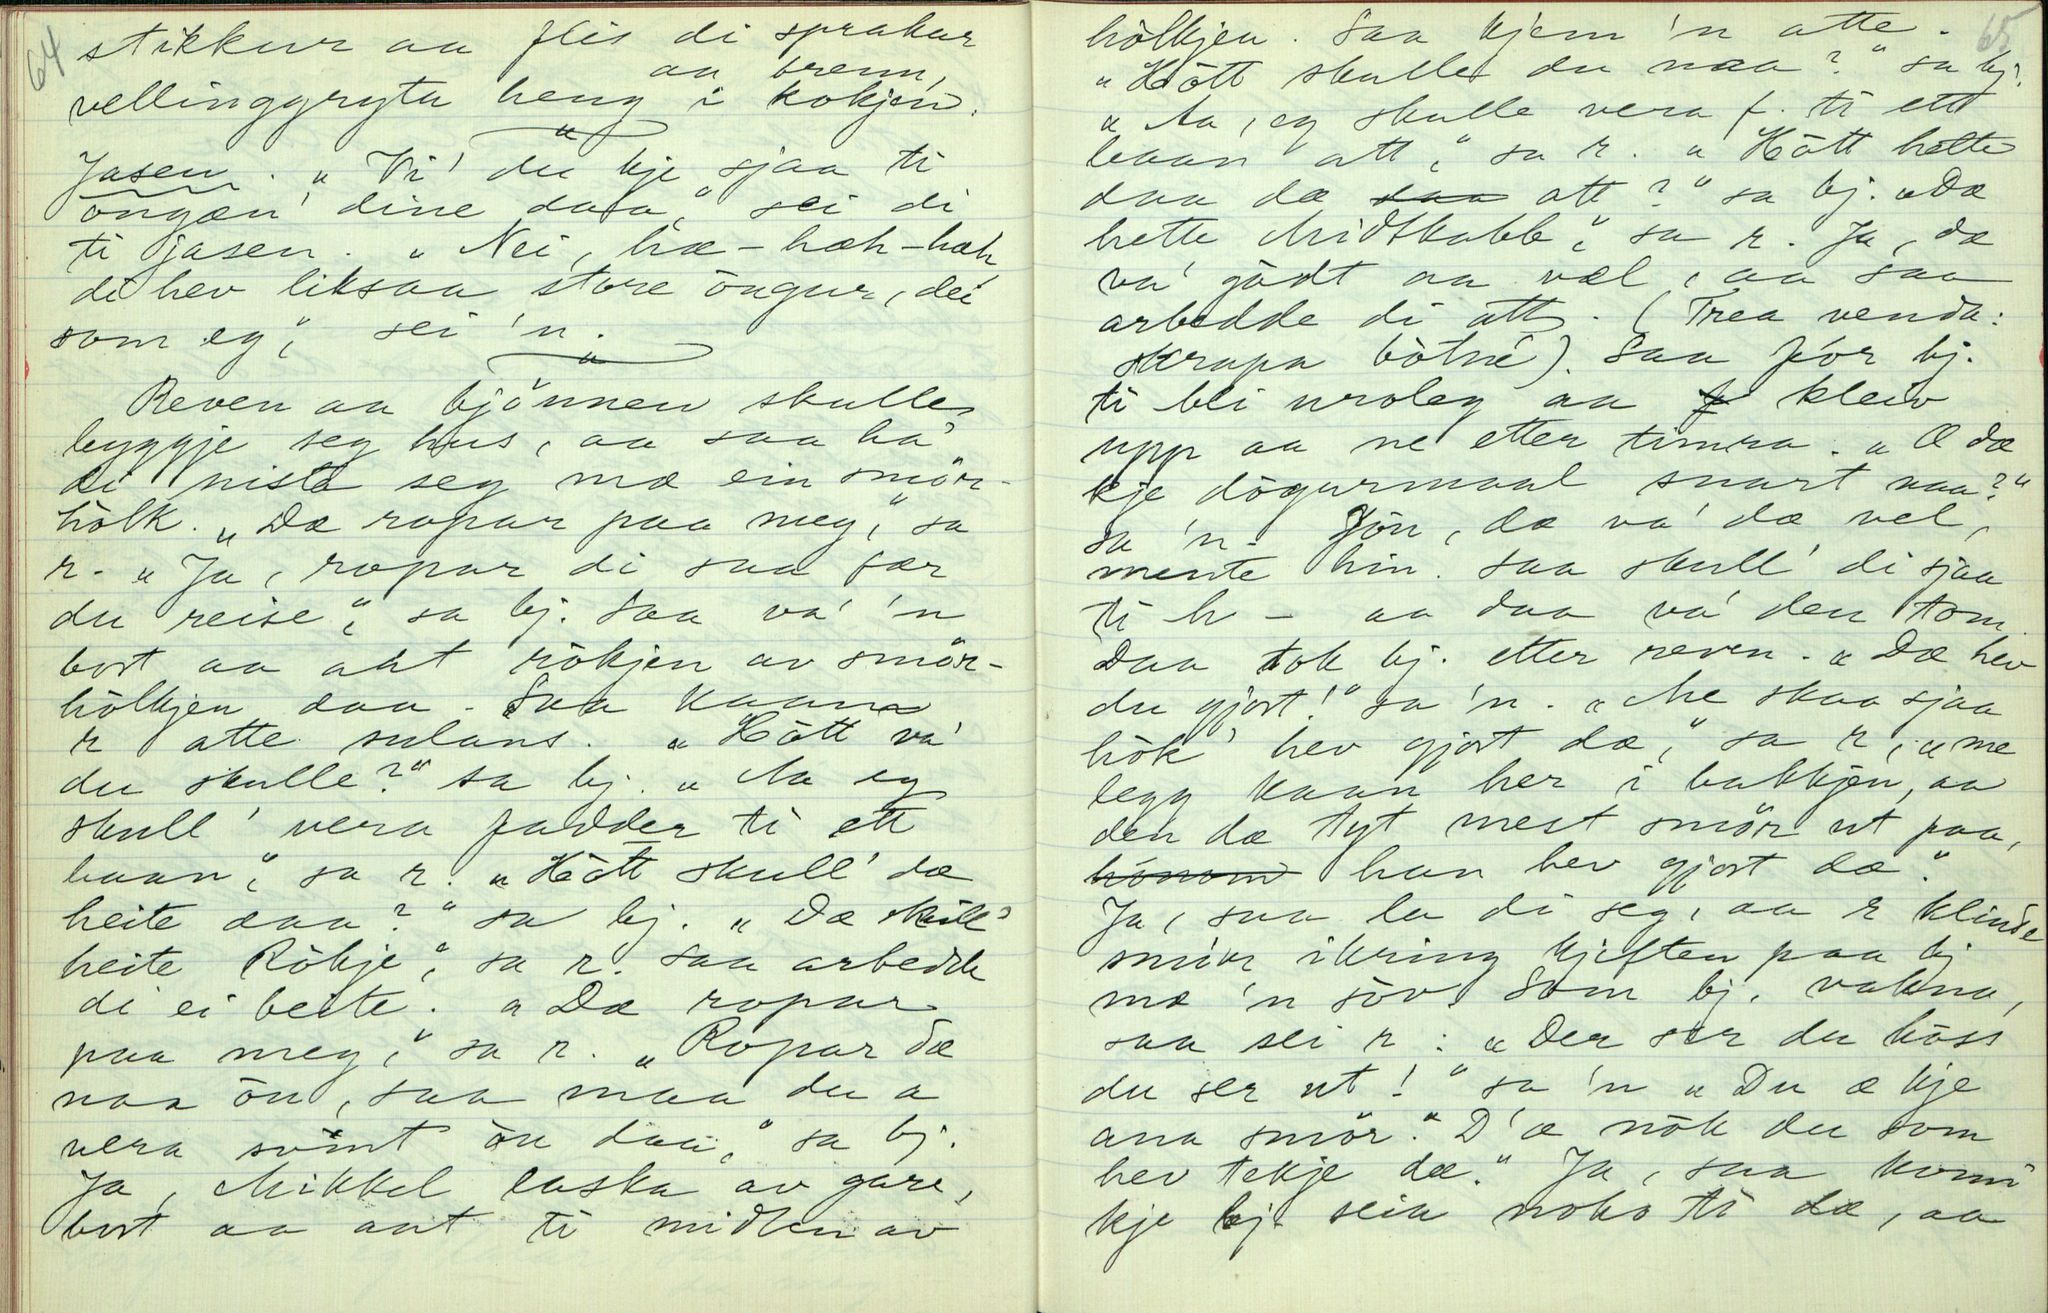 64
stikkur aa flis di sprakar
aa brenn,
vellinggryta heng i kokjen.
"
Jasen. „Vi' du kje sjaa ti
ongæn' dine daa," sei di
ti jasen. „Nei, hæ-hæh-hæh
di hev liksaa store öngur, dei
som eg," sei 'n.
"
Reven aa bjönnen skulle
byggje seg hus, aa saa ha'
di nista seg mæ ein smör-
hölk. „Dæ ropar paa meg," sa
r. „Ja, ropar di saa fær
du reise," sa bj. Saa va' 'n
bort aa aat rökjen av smör-
hölkjen daa. Saa kaam
r atte sulans. „Hött va'
du skulle?" sa bj. „Aa eg
skull' vera fadder ti ett
baan," sa r. „Hött skull' dæ
heite daa?" sa bj. „Dæ skull'
heite Rökje," sa r. Saa arbedde
di ei beite. „Dæ ropar
paa meg," sa r. „Ropar dæ
naa ön, saa maa du a
vera svimt ön daa," sa bj.
Ja, Mikkel laska av gare,
bort aa aat ti midten av
65
hölkjen. Saa kjem 'n atte.
„Hött skulle du naa?" sa bj.
„Aa, eg skulle vera f. ti ett
baan att," sa r. „Hött hette
daa dæ saa att?" sa bj. „Dæ
hette Midtskabb," sa r. Ja, dæ
va' gödt aa væl, aa saa
arbedde di att. (Trea venda:
skrapa bötne). Saa för bj.
ti bli uroleg aa f kleiv
upp aa ne etter timra. „Æ dæ
kje dögurmaal snart naa?"
sa 'n. Jön, dæ va' dæ vel,
mente hin. Saa skull' di sjaa
ti h – aa daa va' den tom.
Daa tok bj. etter reven. „Dæ hev
du gjort!" sa 'n. „Me skaa sjaa
hök' hev gjort dæ," sa r, „me
legg kaan her i bakkjen, aa
den dæ tyt mest smör ut paa,
hönom han hev gjort dæ."
Ja, saa la di seg, aa r klinde
smör ikring kjeften paa bj
mæ 'n söv. Som bj. vakna,
saa sei r: „Der ser du höss
du ser ut!" sa 'n „Du æ kje
ana smör." D'æ nök du som
hev tekje dæ." Ja, saa kunn'
kje bj. seia noko ti dæ, aa